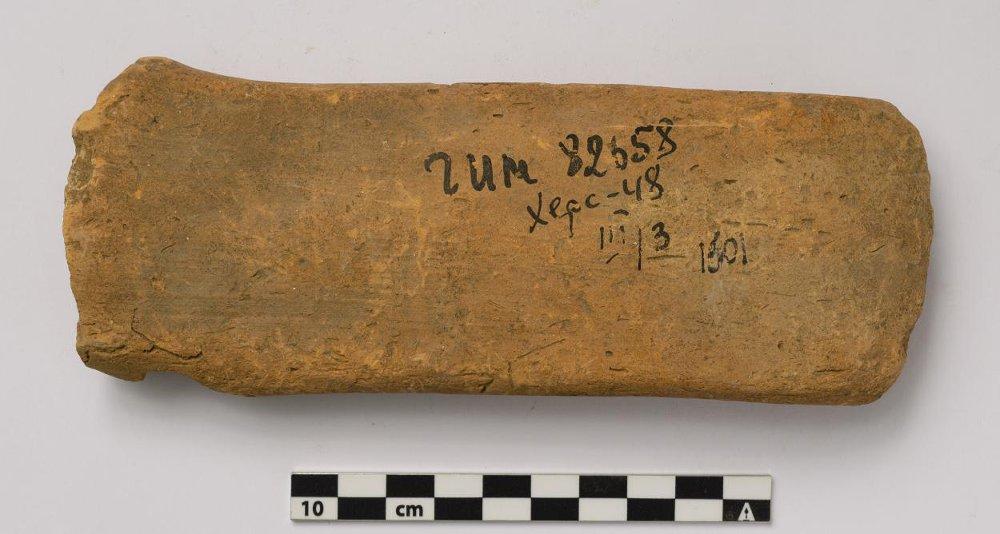 гим 82558
Херс-48
III/3 1601
10 cm